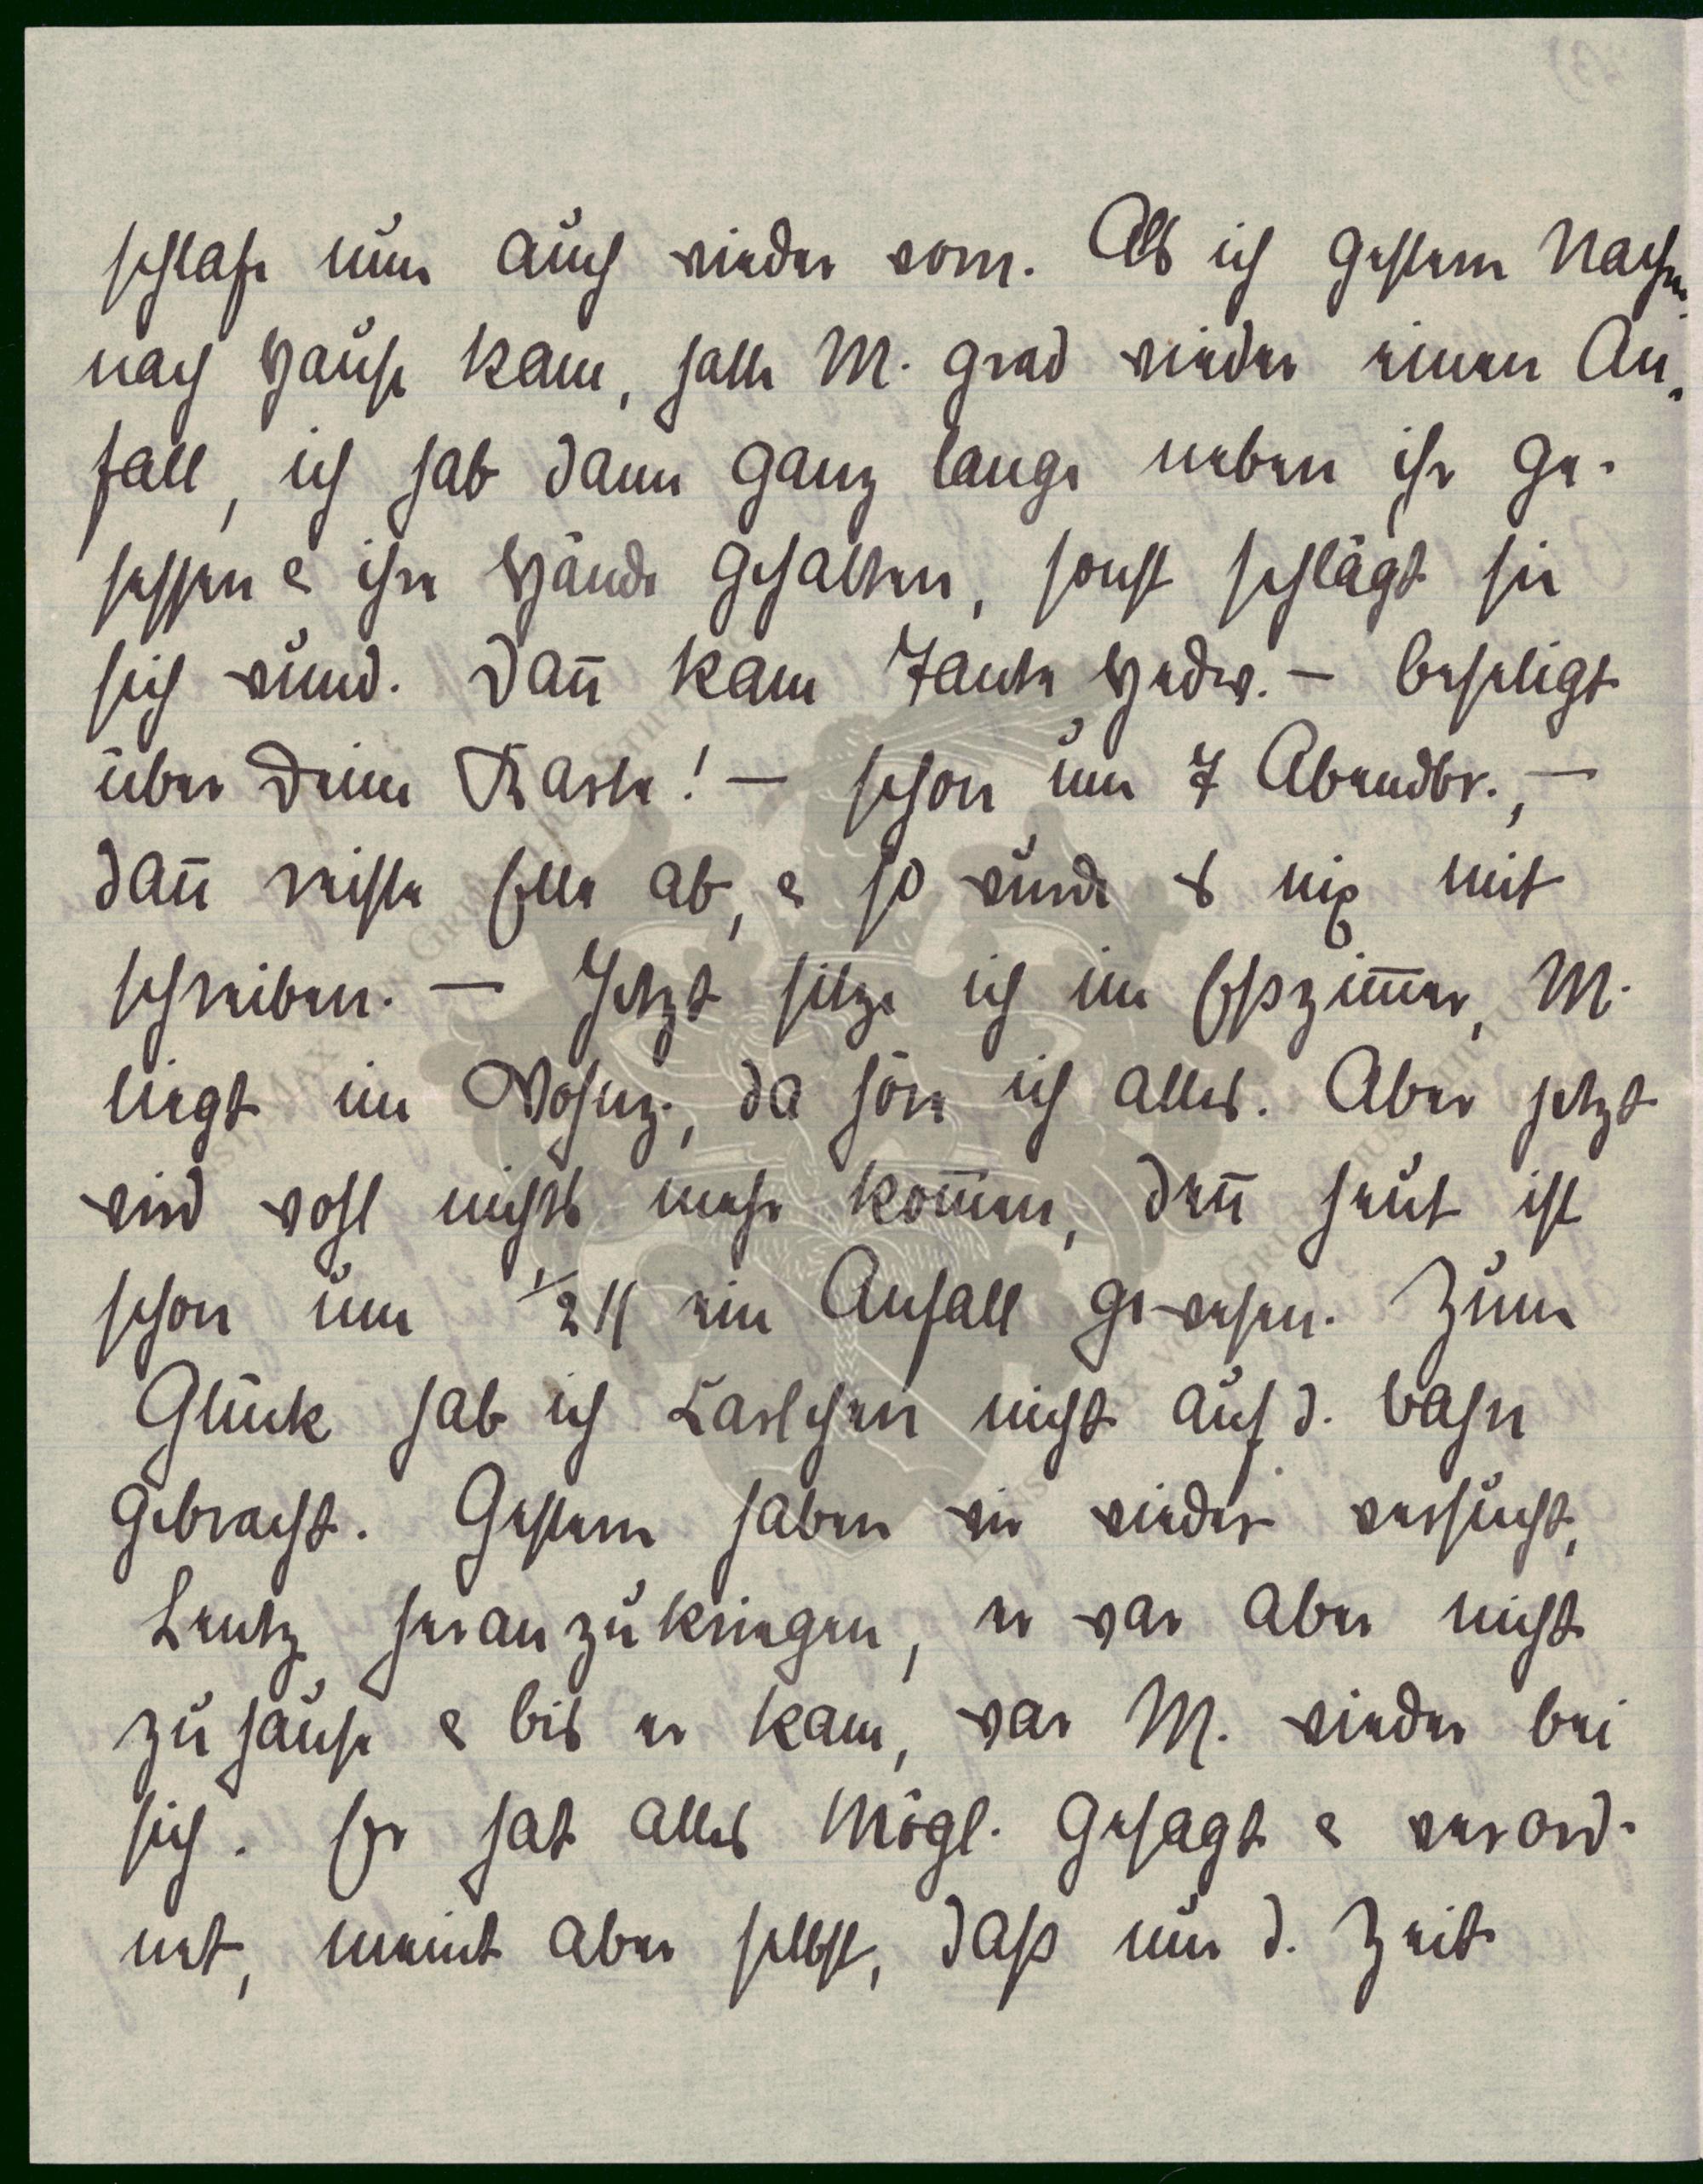 schlafe nun auch wieder vorn. Als ich gestern Nachm.
nach Hause kam, hatte M. grad wieder einen An-
fall, ich hab dann ganz lange neben ihr ge-
sessen & ihre Hände gehalten, sonst schlägt sie
sich wund. Dann kam Tante Hedw. – beseligt
über Deine Karte! – schon um 7 Abendbr., –
dann reiste Elle ab, & so wurde es nix mit
schreiben. – Jetzt sitze ich im Eßzimmer, M.
liegt im Wohnz., da hör ich alles. Aber jetzt
wird wohl nichts mehr kommen, denn heut ist
schon um ½ 11 ein Anfall gewesen. Zum
Glück hab ich Karlchen nicht auf d. Bahn
gebracht. Gestern haben wir wieder versucht,
Lentz heranzukriegen, er war aber nicht
zuhause & bis er kam, war M. wieder bei
sich. Er hat alles Mögl. gesagt & verord-
net, meint aber selbst, daß nur d. Zeit